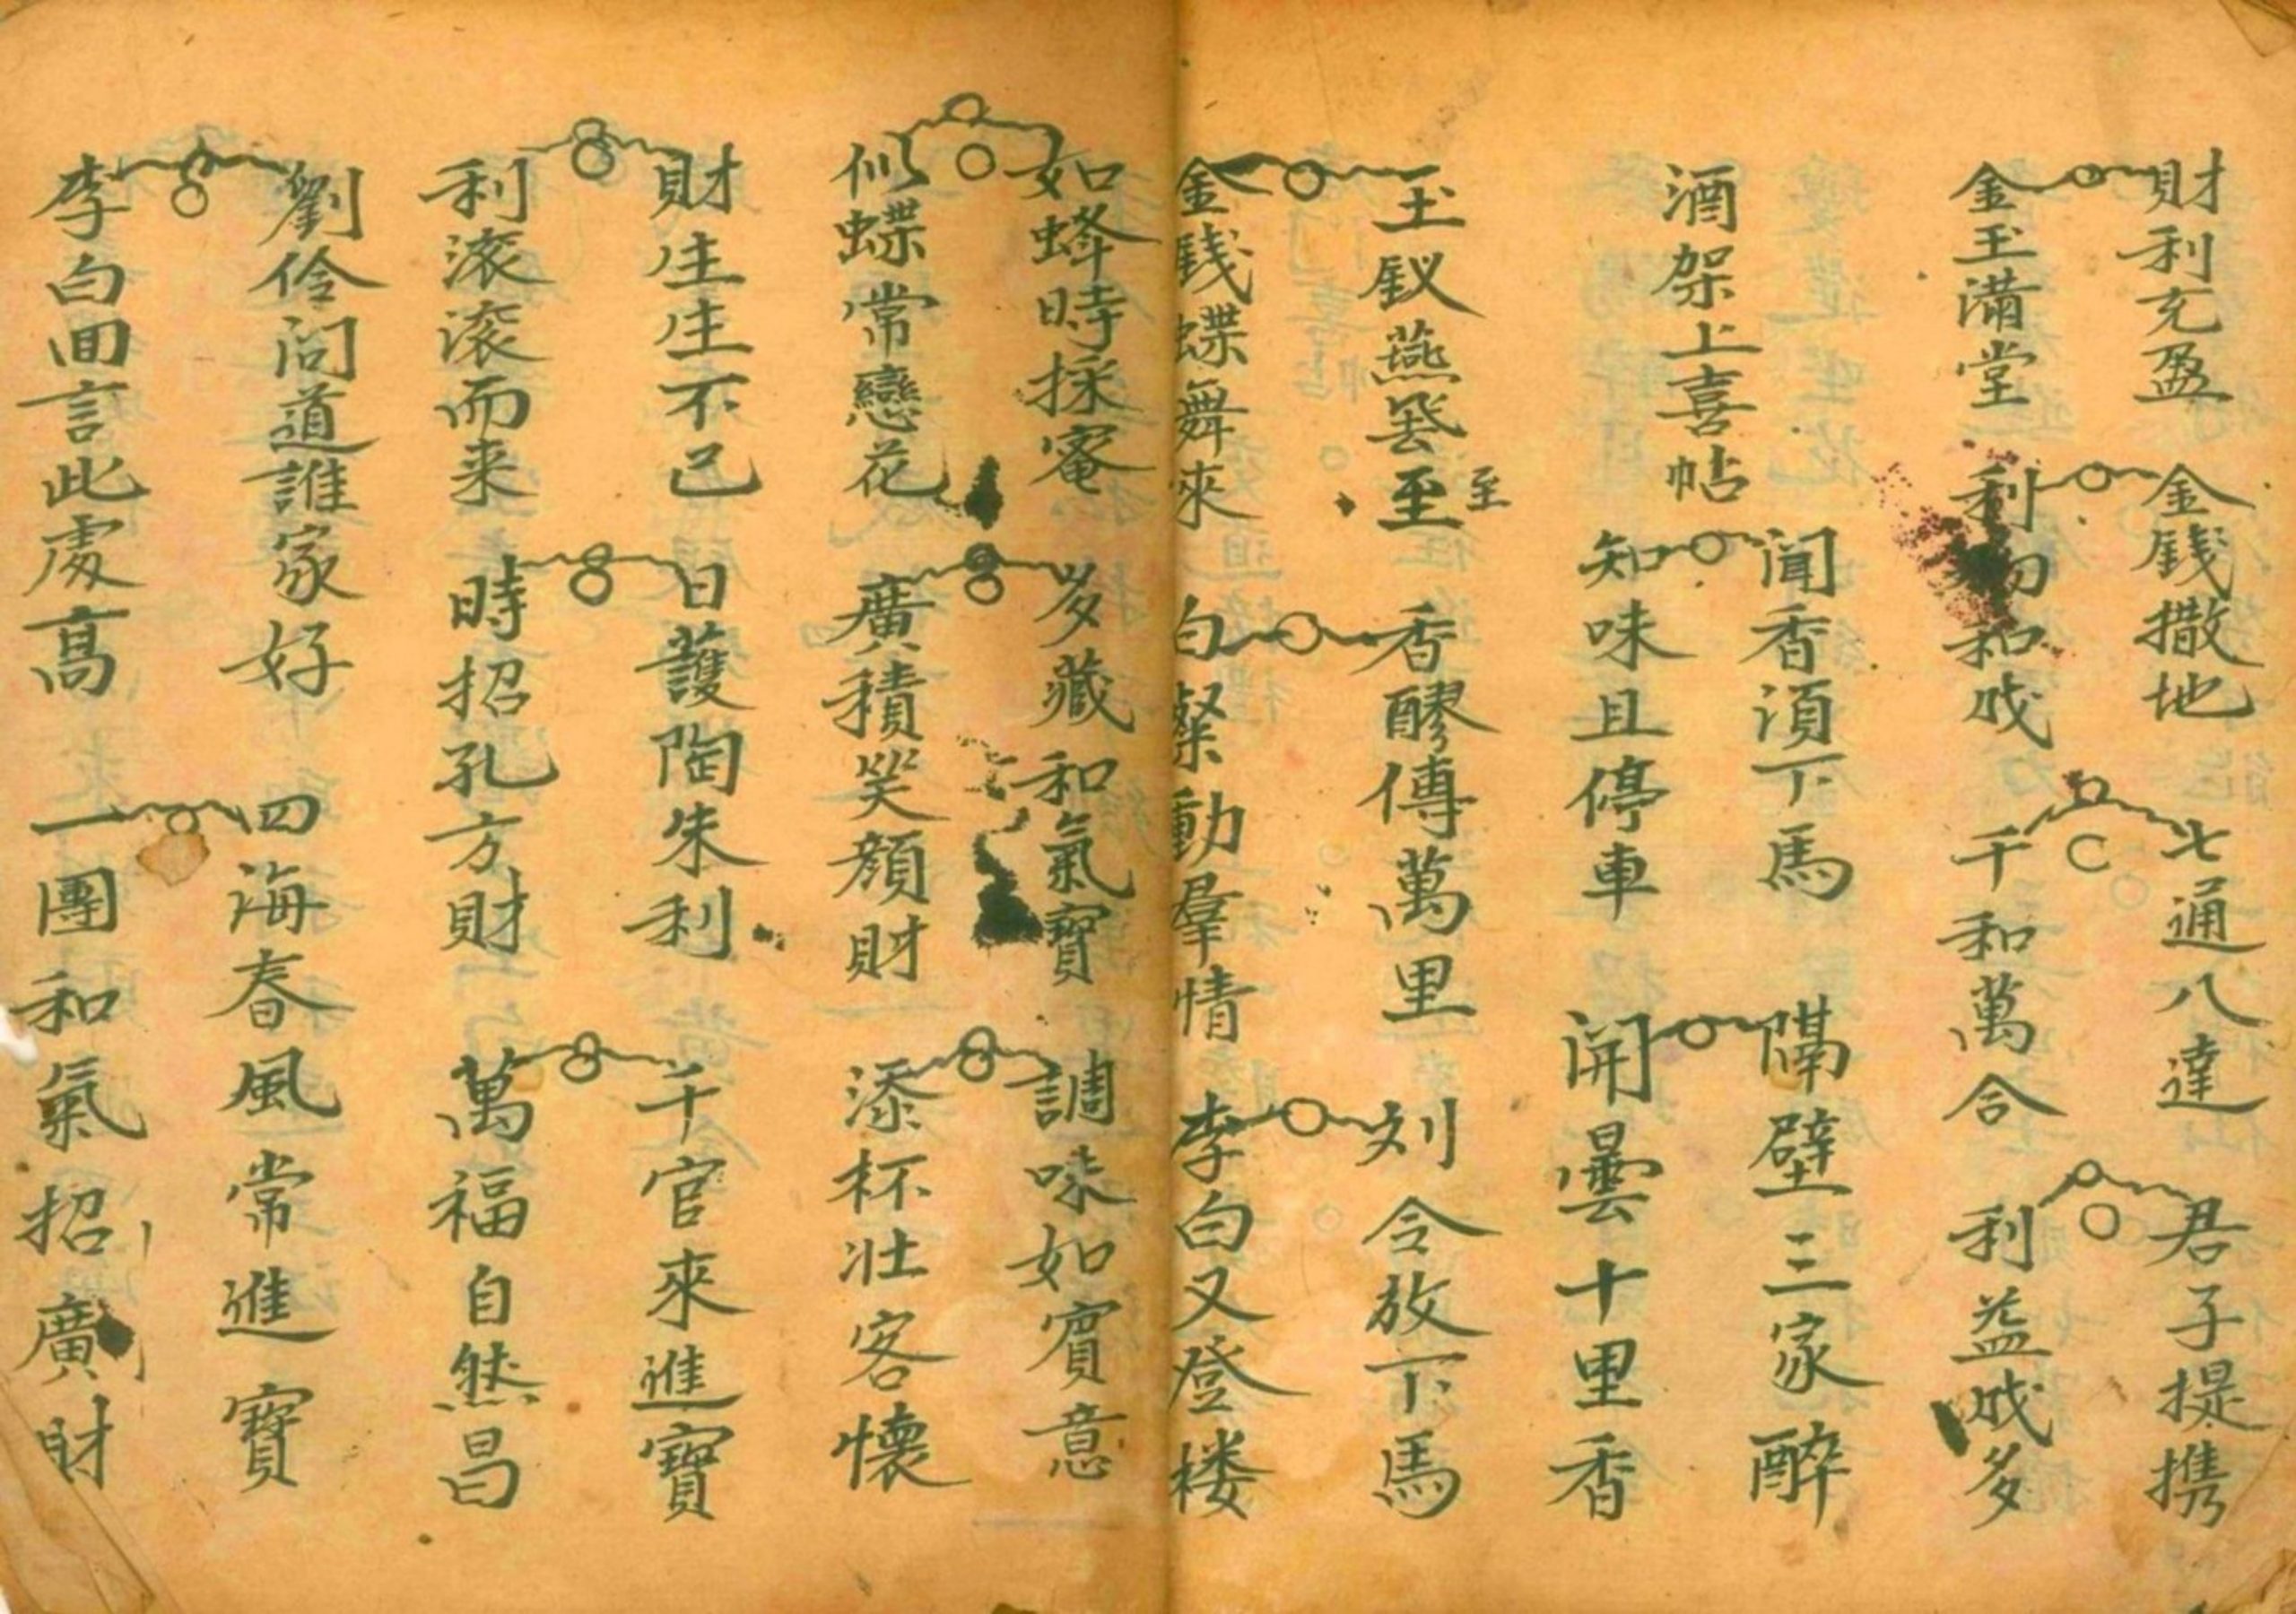 財利充盈 金錢撒地 七通八達 君子提携
金玉滿堂 利 和成 千和萬合 利益成多
聞香須下馬 隔壁三家醉
酒架上喜帖
知味且停車 開曇十里香
玉釵燕 至至 香醪傳萬里 刘令放下馬
金錢蝶舞來 白粲動羣情 李白又登楼
如蜂時採蜜 多藏和氣寶 調味如賓意
似蝶常戀花 廣積笑顔財 添杯壯客懷
財生生不已 日護陶朱利 千官來進寶
利滚滚而来 時招孔方財 萬福自然昌
劉伶问道誰家好 四海春風常進寶
李白回言此處高 一團和氣招廣財